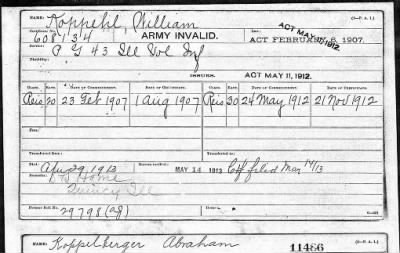 NAME: Koppehl, William (3-P. A. I.)
Certificate No. 608134 ARMY INVALID. ACT MAY 11, 1912. ACT FEBRUARY 6, 1907.
Service: G 43 Ill Vol Inf
Disability:
ISSUES. ACT MAY 11, 1912.
CLASS. RATE. DATE OF COMMENCEMENT. DATE OF CERTIFICATE. CLASS. RATE. DATE OF COMMENCEMENT. DATE OF CERTIFICATE.
Reis 20 23 Feb 1907 1 Aug 1907 Reis 30 24 May 1912 21 Nov 1912
Transferred from
Died Apr 29, 1913 MAY 14 1913 Ctf filed May 14/13
Remarks: Home
Quincy Ill
Former Roll No. 29798
NAME: Koppelberger Abraham 11486